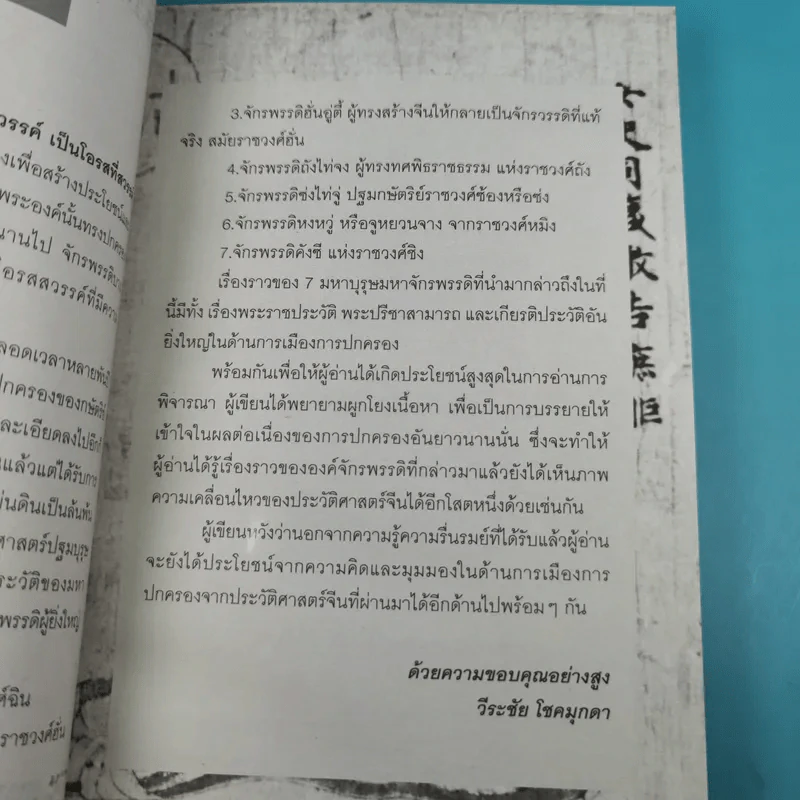 วรรค์ เป็นโอรสที่สวรร
งเพื่อสร้างประโยชน์
พระองค์นั้นทรงปกคร
นานไป จักรพรรดิ
โอรสสวรรค์ที่มีความ
ลอดเวลาหลายพัน
ปกครองของกษัตริ
ละเอียดลงไปอีก
นแล้วแต่ได้รับการ
ผ่นดินเป็นล้นพ้น
ศาสตร์ปฐมบุรุษ
ระวัติของมหา
พรรดิผู้ยิ่งใหญ่
ศ์ฉิน
ราชวงศ์ฮั่น
3.จักรพรรดิฮั่นอู่ตี้ ผู้ทรงสร้างจีนให้กลายเป็นจักรวรรดิที่แท้
จริง สมัยราชวงศ์ฮั่น
4.จักรพรรดิถังไท่จง ผู้ทรงทศพิธราชธรรม แห่งราชวงศ์ถัง
5.จักรพรรดิซ่งไท่จู่ ปฐมกษัตริย์ราชวงศ์ซ้องหรือซ่ง
6.จักรพรรดิหงหวู่ หรือจูหยวนจาง จากราชวงศ์หมิง
7.จักรพรรดิคังซี แห่งราชวงศ์ชิง
เรื่องราวของ 7 มหาบุรุษมหาจักรพรรดิที่นำมากล่าวถึงในที่
นี้มีทั้ง เรื่องพระราชประวัติ พระปรีชาสามารถ และเกียรติประวัติอัน
ยิ่งใหญ่ในด้านการเมืองการปกครอง
พร้อมกันเพื่อให้ผู้อ่านได้เกิดประโยชน์สูงสุดในการอ่านการ
พิจารณา ผู้เขียนได้พยายามผูกโยงเนื้อหา เพื่อเป็นการบรรยายให้
เข้าใจในผลต่อเนื่องของการปกครองอันยาวนานนั่น ซึ่งจะทำให้
ผู้อ่านได้รู้เรื่องราวขององค์จักรพรรดิที่กล่าวมาแล้วยังได้เห็นภาพ
ความเคลื่อนไหวของประวัติศาสตร์จีนได้อีกโสตหนึ่งด้วยเช่นกัน
ผู้เขียนหวังว่านอกจากความรู้ความรื่นรมย์ที่ได้รับแล้วผู้อ่าน
จะยังได้ประโยชน์จากความคิดและมุมมองในด้านการเมืองการ
ปกครองจากประวัติศาสตร์จีนที่ผ่านมาได้อีกด้านไปพร้อมๆ กัน
ด้วยความขอบคุณอย่างสูง
วีระชัย โชคมุกดา